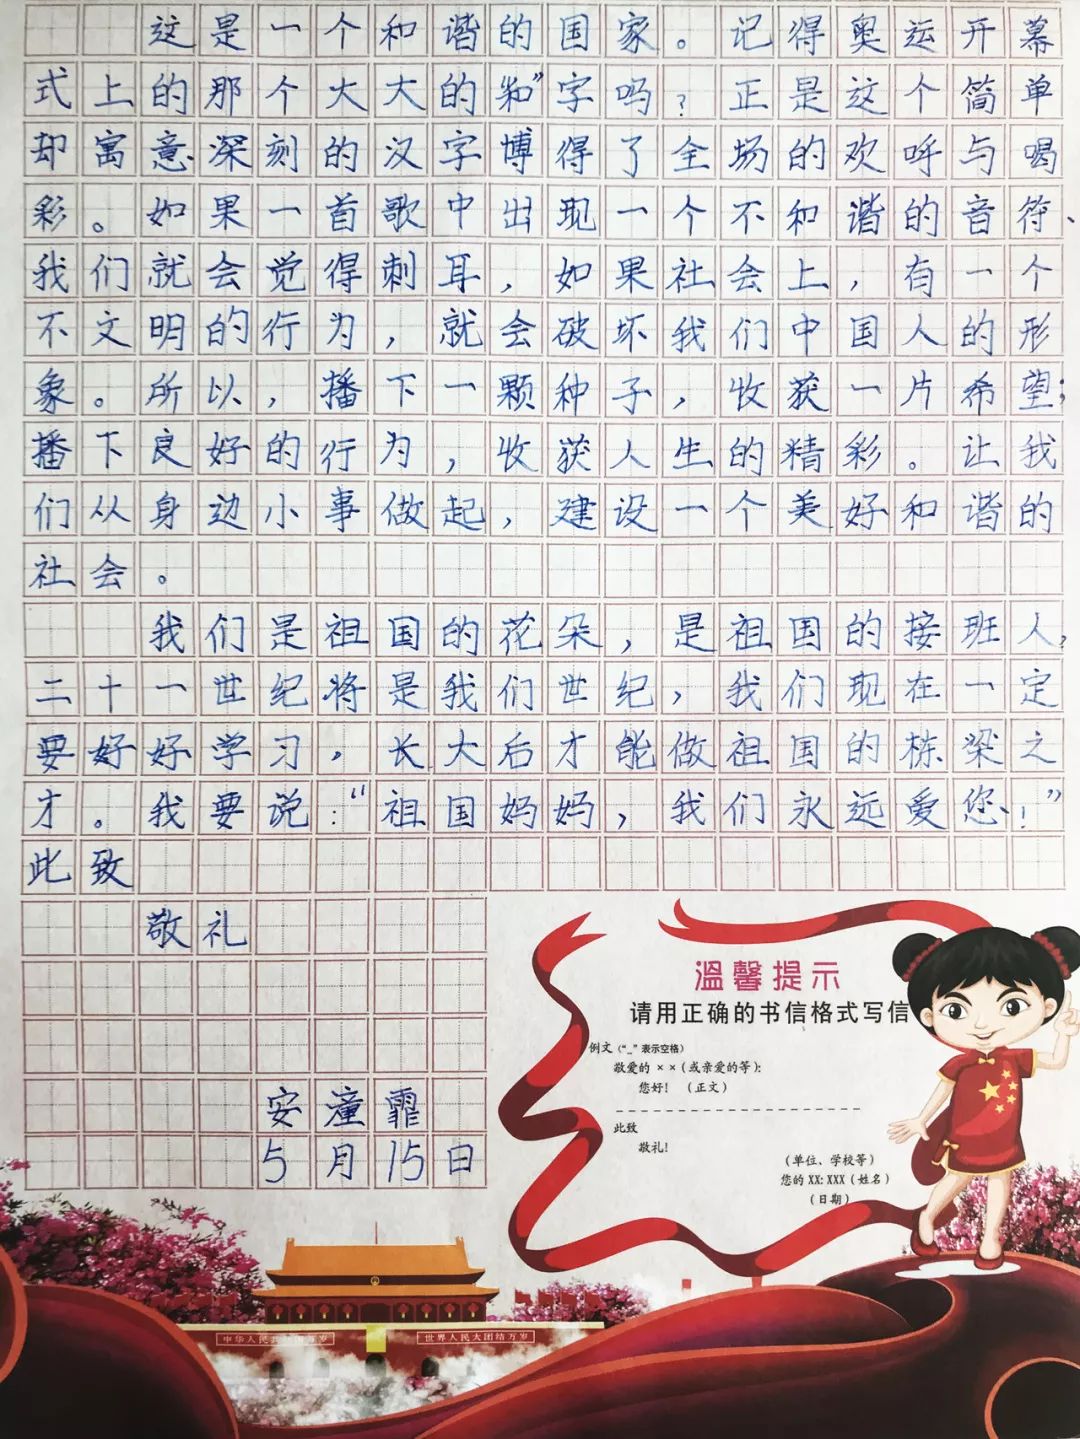 这是一个和谐的国家。记得奥运开幕
式上的那个大大的“和”字吗？正是这个简单
却寓意深刻的汉字博得了全场的欢呼与喝
彩。如果一首歌中出现一个不和谐的音符、
我们就会觉得刺耳，如果社会上，有一个
不文明的行为，就会破坏我们中国人的形
象。所以，播下一颗种子，收获一片希望；
播下良好的行为，收获人生的精彩。让我
们从身边小事做起，建设一个美好和谐的
社会。
我们是祖国的花朵，是祖国的接班人，
二十一世纪将是我们世纪，我们现在一定
要好好学习，长大后才能做祖国的栋梁之
才。我要说：“祖国妈妈，我们永远爱您！”
此致
敬礼
安潼霏
5月15日
溫馨提示
请用正确的书信格式写信
例文（“_”表示空格）
敬爱的××（或亲爱的等）：
您好！（正文）
此致
敬礼！
（单位、学校等）
您的XX：XXX（姓名）
（日期）
中华人民共和国万岁
世界人民大团结万岁